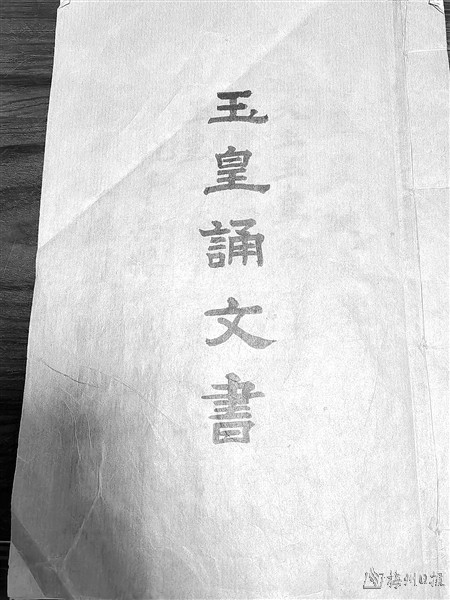 玉皇誦文書
梅州日报